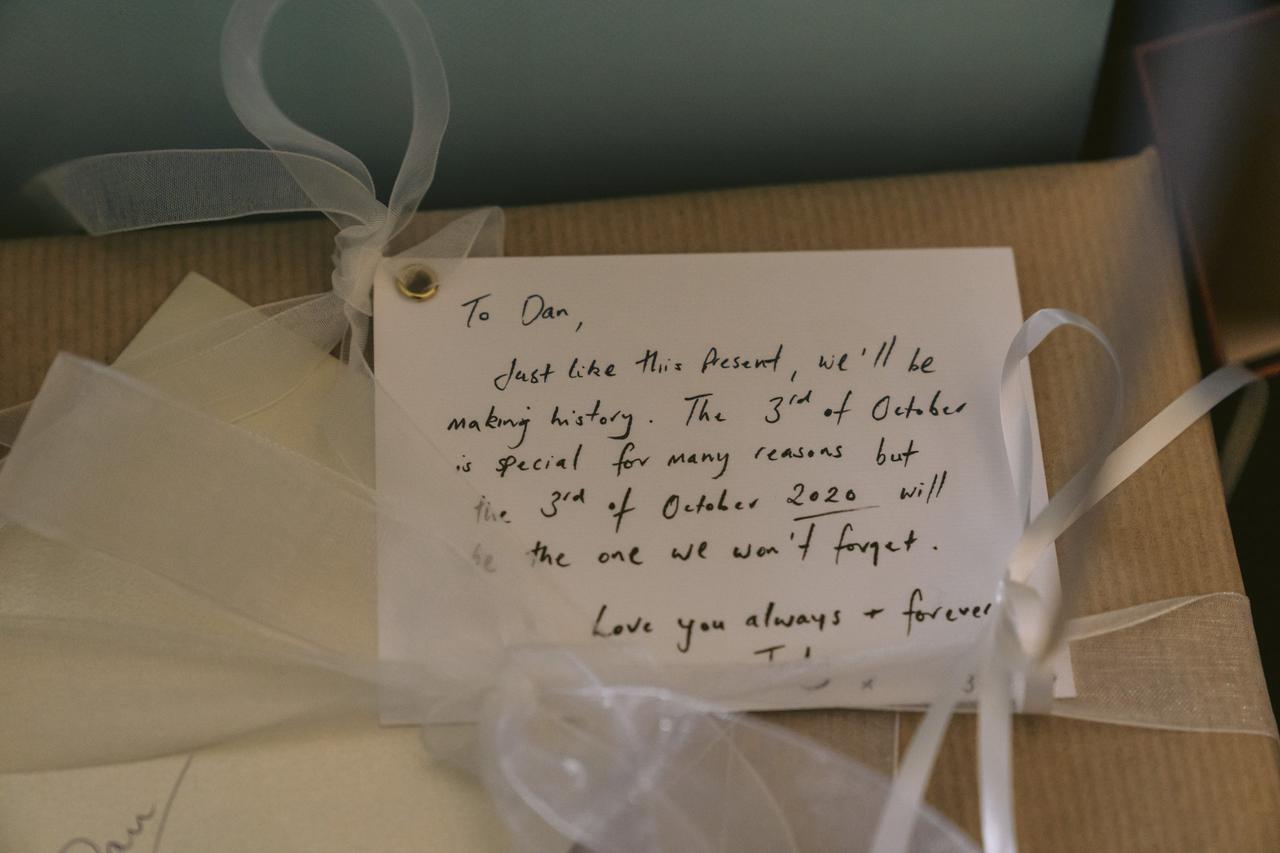 To Dan,
Just like this present, we'll be
making history. The 3rd of October
is special for many reasons but
the 3rd of October 2020 will
be the one we won't forget.
Love you always + forever
x
Dan